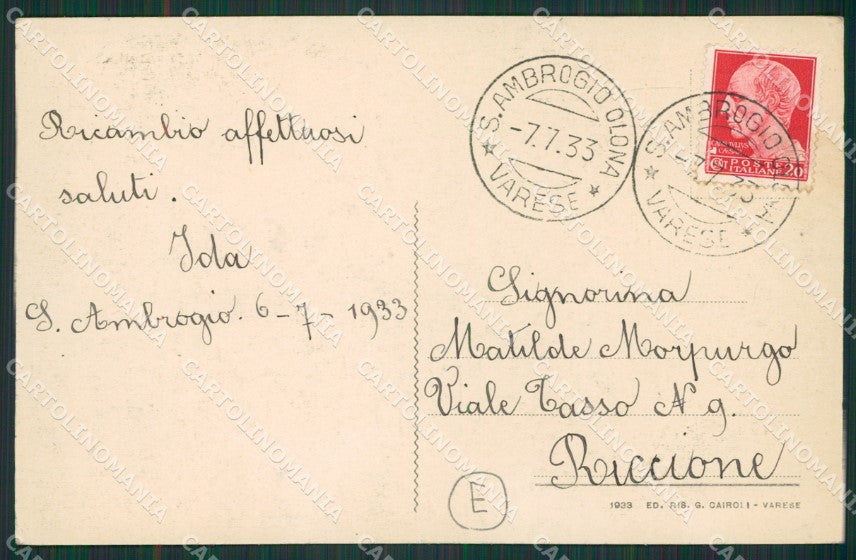 Ricambio affettuosi
saluti.
Ida
S. Ambrogio. 6-7-1933
S. AMBROGIO OLONA
-7.7.33
* VARESE *
S. AMBROGIO OLONA
* VARESE *
POSTE
ITALIANE
CENT 20
Signorina
Matilde Morpurgo
Viale Tasso N 9.
Riccione
E
1933 ED. RIS. G. CAIROLI - VARESE
CARTOLINOMANIA